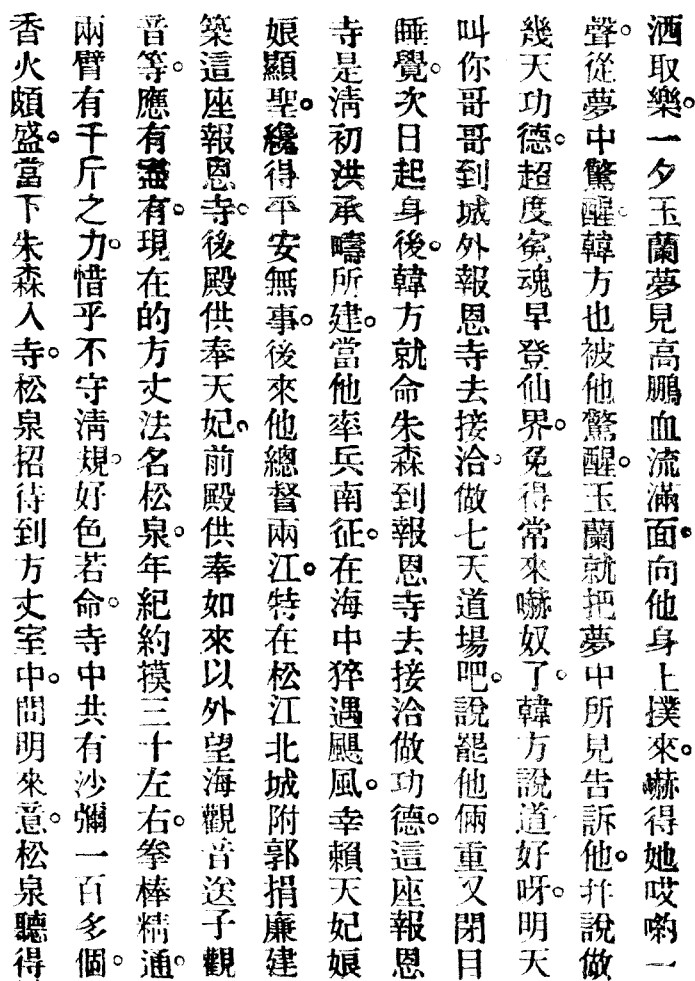 洒取樂。一夕玉蘭夢見高鵬血流滿面。向他身上撲來。嚇得她哎喲一
聲。從夢中驚醒。韓方也被他驚醒。玉蘭就把夢中所見告訴他。幷說做
幾天功德。超度寃魂早登仙界。免得常來嚇奴了。韓方說道好呀。明天
叫你哥哥到城外報恩寺去接洽。做七天道塲吧。說罷他倆重又閉目
睡覺。次日起身後。韓方就命朱森到報恩寺去接洽做功德。這座報恩
寺是淸初洪承疇所建。當他率兵南征。在海中猝遇颶風。幸賴天妃娘
娘顯聖。纔得平安無事。後來他總督兩江。特在松江北城附郭捐廉建
築這座報恩寺。後殿供奉天妃。前殿供奉如來以外望海觀音送子觀
音等。應有盡有。現在的方丈法名松泉。年紀約摸三十左右。拳棒精通。
兩臂有千斤之力。惜乎不守淸規。好色若命。寺中共有沙彌一百多個。
香火頗盛。當下朱森入寺。松泉招待到方丈室中。問明來意。松泉聽得